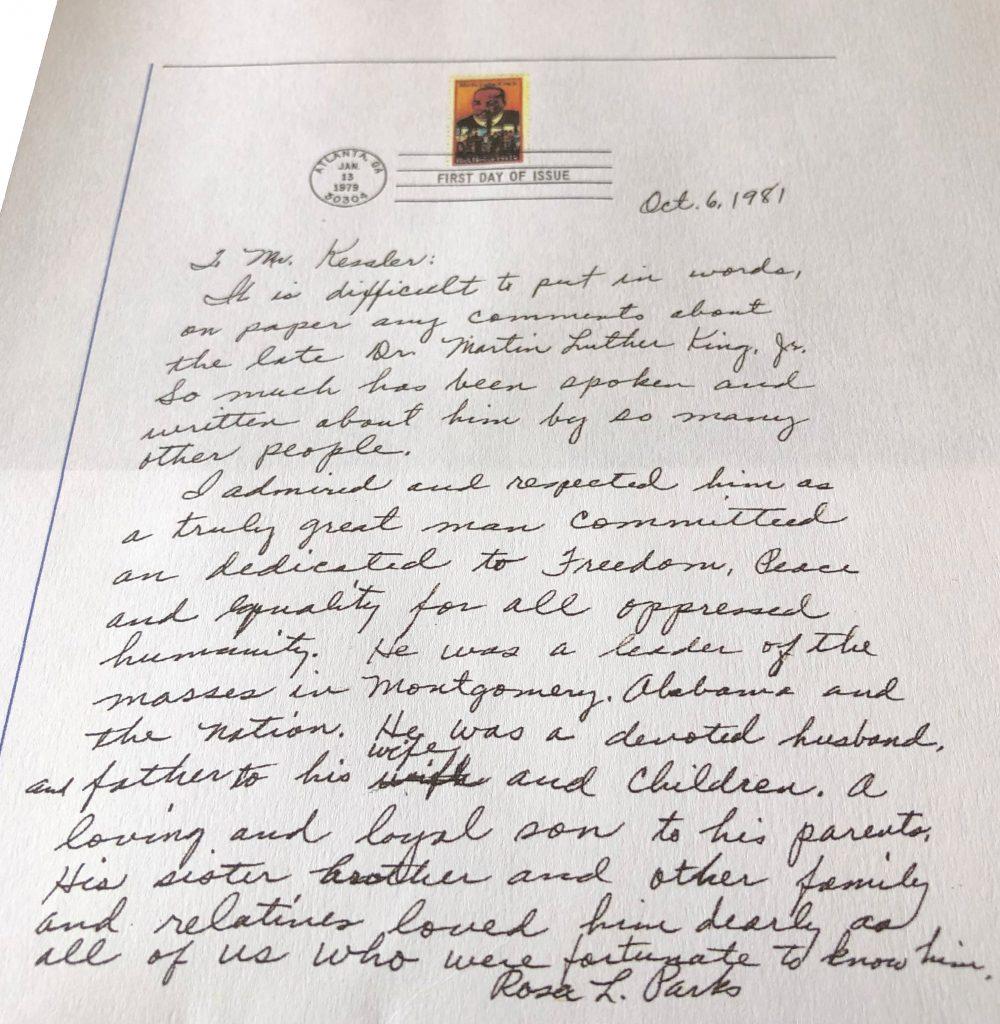 ATLANTA, GA
JAN.
13
1979
30304
FIRST DAY OF ISSUE
Oct. 6, 1981
To Mr. Kessler:
It is difficult to put in words,
on paper any comments about
the late Dr. Martin Luther King, Jr.
So much has been spoken and
written about him by so many
other people.
I admired and respected him as
a truly great man committed
an dedicated to Freedom, Peace
and Equality for all oppressed
humanity. He was a leader of the
masses in Montgomery, Alabama and
the nation. He was a devoted husband,
and father to his wife and children. A
loving and loyal son to his parents.
His sister brother and other family
and relatives loved him dearly as
all of us who were fortunate to know him.
Rosa L. Parks